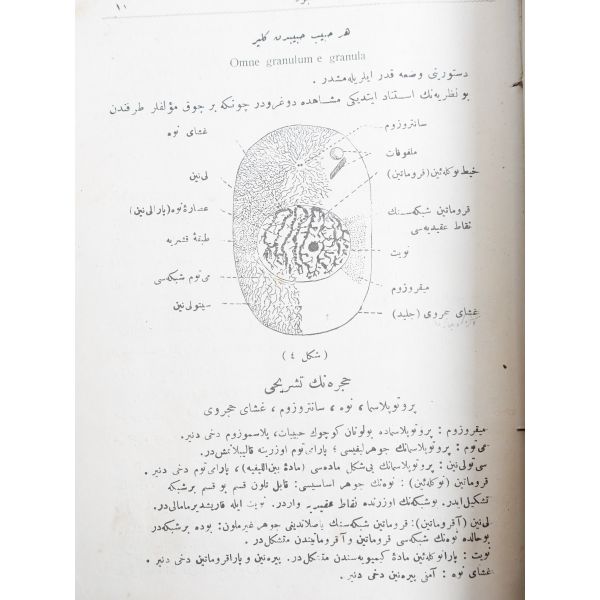 ١١
هر حبیب حبیبدن کلیر
Omne granulum e granula
دستورینی وضعه قدر ایلریله‌مشدر .
بو نظریه‌نك استناد ایتدیکی مشاهده دوغرودر چونکه بر چوق مؤلفلر طرفندن
غشای نوه
لی‌نین
عصارهٔ نوه (پارالی‌نین)
طبقهٔ قشریه
می‌توم شبکه‌سی
سیتولی‌نین
سانتروزوم
ملفوفات
خیط نوکله‌ئین (قروماتین)
قروماتین شبکه‌سنك
نقاط عقیدیه‌سی
نویت
میقروزوم
غشای حجروی (جلید)
( شکل ٤ )
حجره‌نك تشریحی
پروتوپلاسما ، نوه ، سانتروزوم ، غشای حجروی
میقروزوم : پروتوپلاسماده بولونان کوچوك حبیبات ، پلاسموزوم دخی دنیر.
می‌توم : پروتوپلاسمانك جوهر لیفیسی ؛ پارامی‌توم اوزرینه قالیبلانمش‌در.
سی‌تولی‌نین : پروتوپلاسمانك بی‌شکل ماده‌سی (مادهٔ بین‌اللیفیه) ، پارامی‌توم دخی دنیر .
قروماتین (نوکله‌ئین) : نوه‌نك جوهر اساسیسی : قابل تلون قسم بو قسم بر شبکه
تشکیل ایدر. بو شبکه‌نك اوزرنده نقاط عقیدیه واردر. نویت ایله قاریشدیرمامالی‌در.
لی‌نین (آقروماتین) : قروماتین شبکه‌سنك یاصلاندیغی جوهر غیرملون : بوده بر شبکه‌در
بو حالده نوه‌نك شبکه‌سی قروماتین و آقروماتیندن متشکل‌در .
نویت : پارانوکله‌ئین مادهٔ کیمیویه‌سندن متشکل‌در. پیره‌نین و پاراقروماتین دخی دنیر .
غشای نوه : آمفی پیره‌نین دخی دنیر .